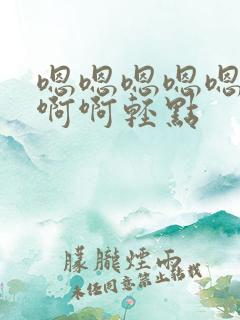 嗯嗯嗯嗯嗯
啊啊轻點
朦朧煙雨
未经同意禁止转载